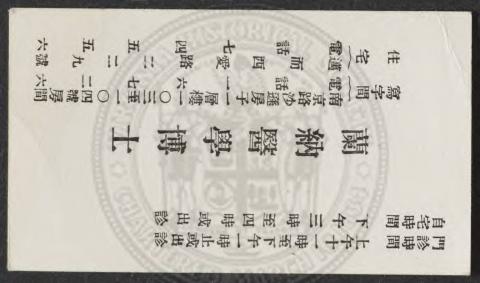 門診時間 上午十一時至下午一時止或出診
自宅時間 下午三時至四時或出診
蘭納醫學博士
寫字間 南京路沙遜房子一層樓一〇三至一〇四號房間
電話 一六七二六
住宅 邁而西愛路四五五號
電話 七二二九六